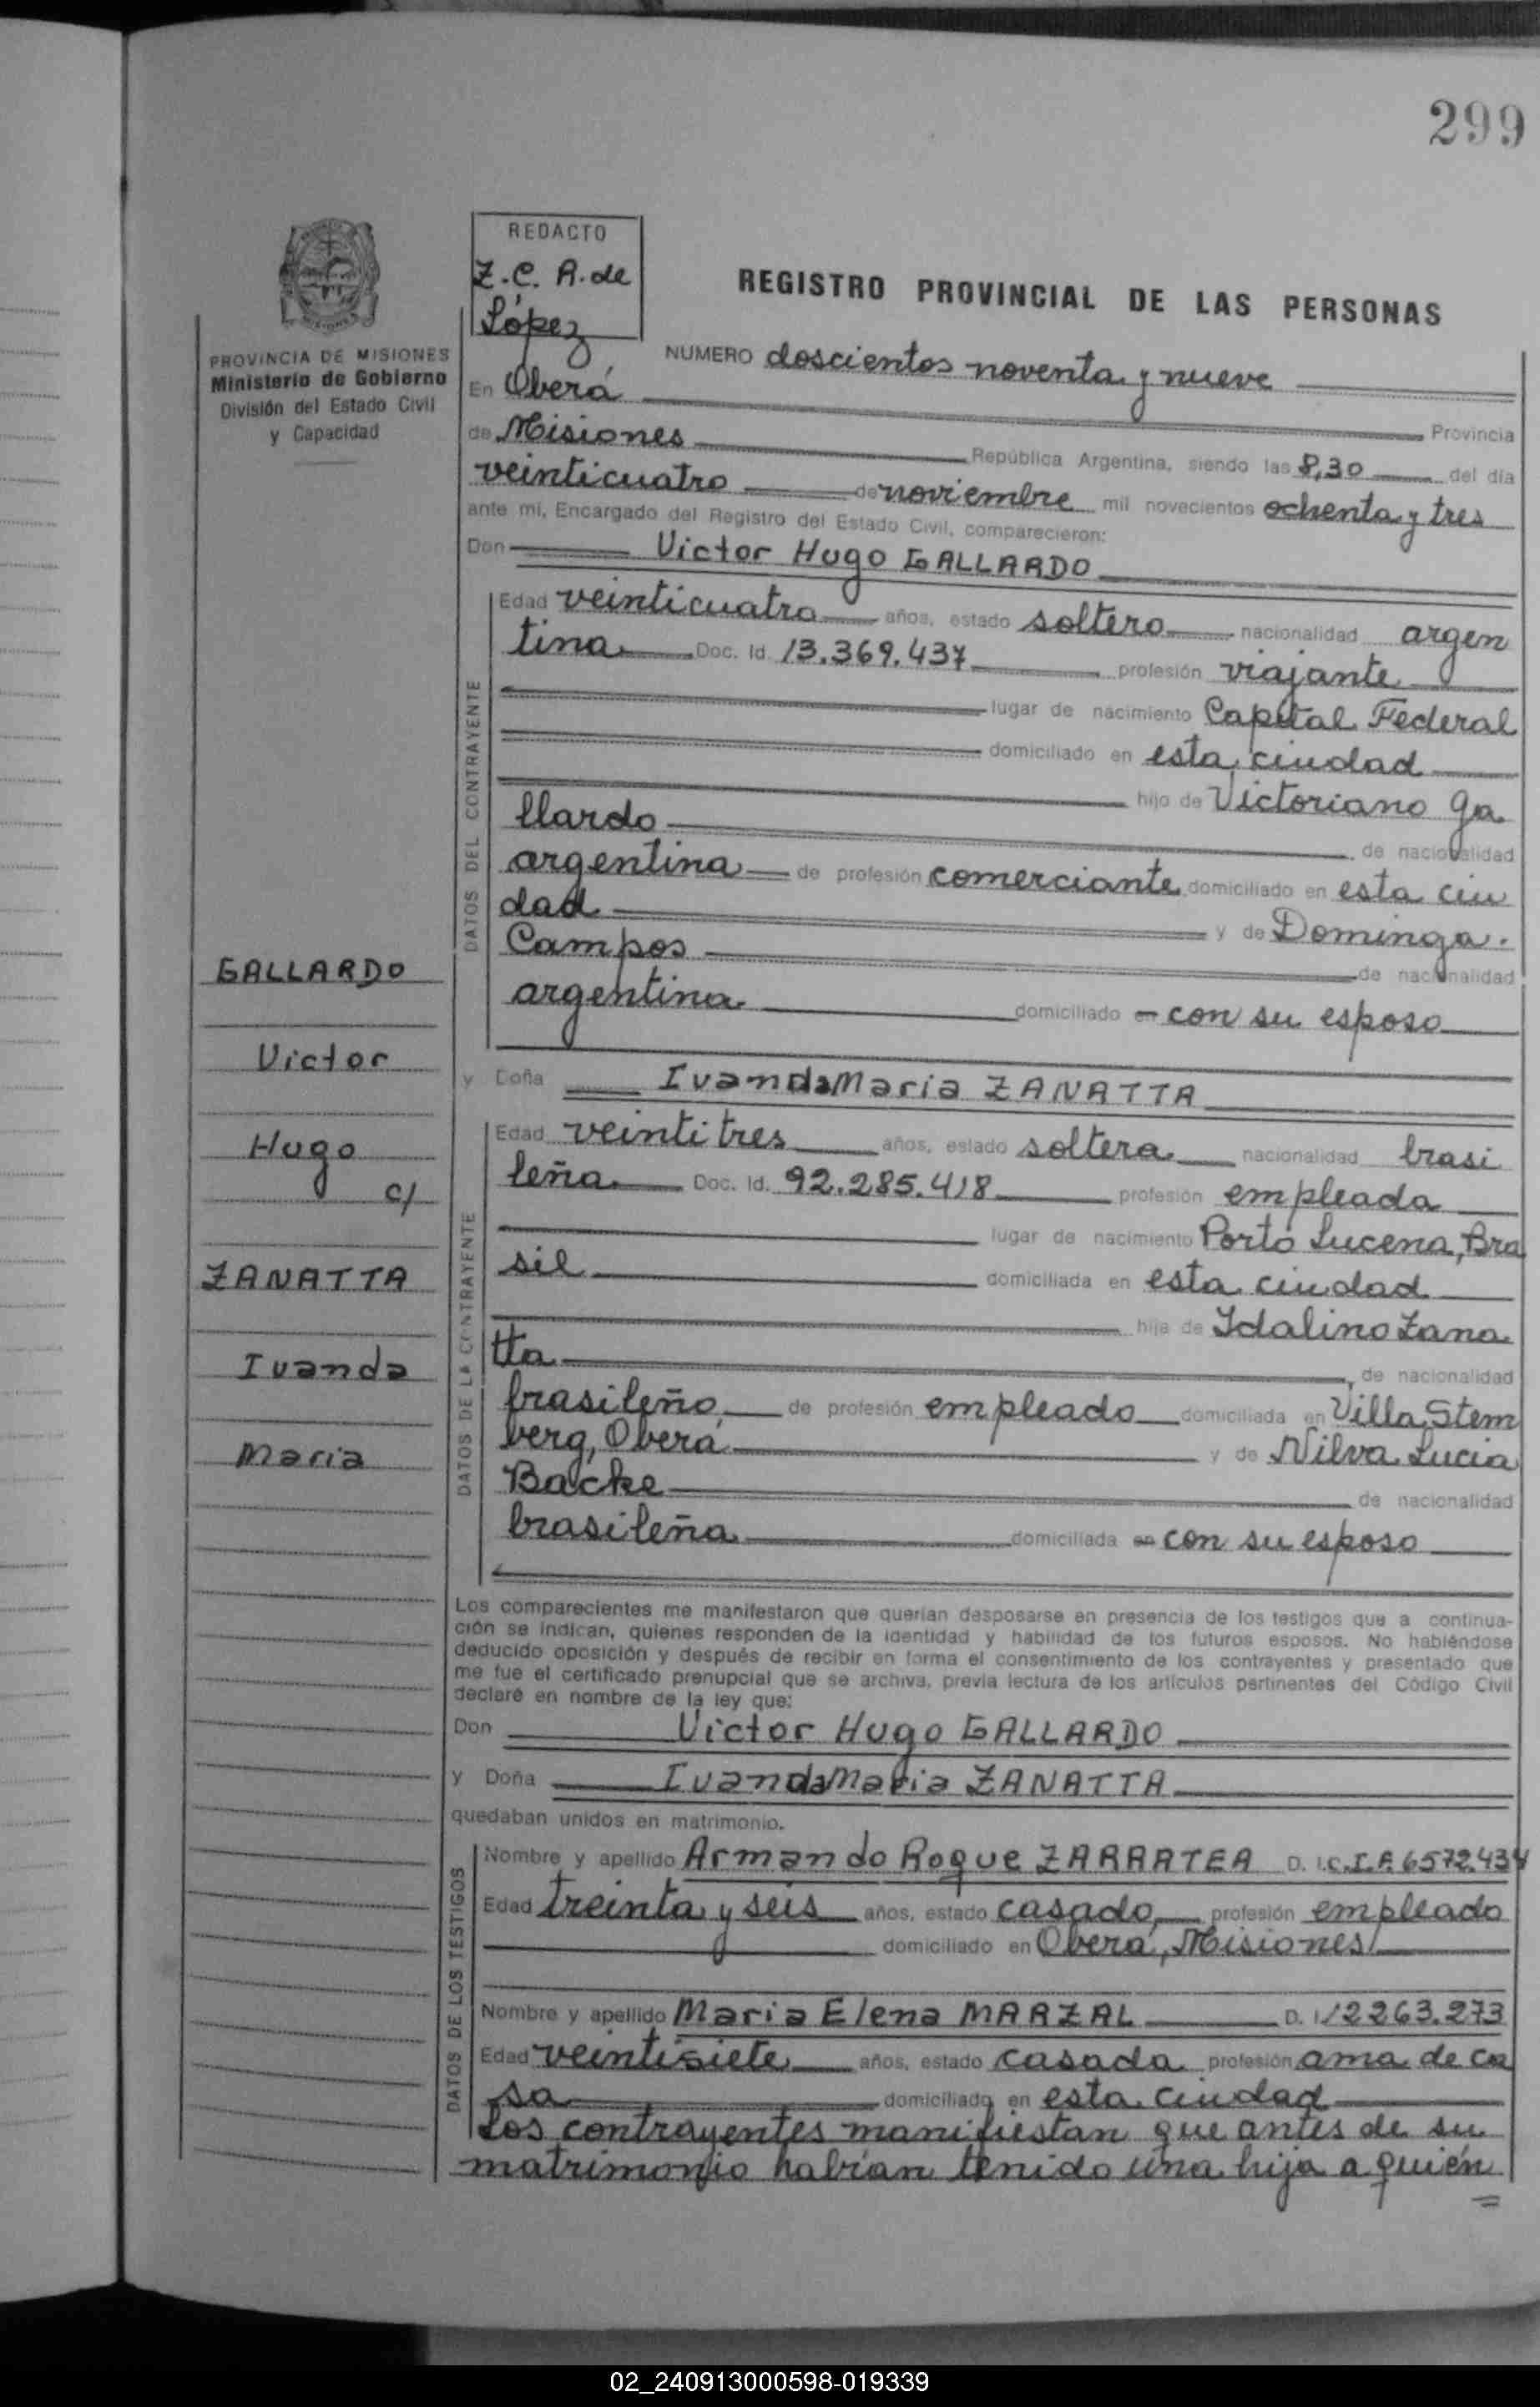 299
REDACTO
Z.C. A. de
López
REGISTRO PROVINCIAL DE LAS PERSONAS
PROVINCIA DE MISIONES
Ministerio de Gobierno
División del Estado Civil
y Capacidad
NUMERO doscientos noventa y nueve
En Oberá
Provincia
de Misiones República Argentina, siendo las 8,30 del día
veinticuatro de noviembre mil novecientos ochenta y tres
ante mí, Encargado del Registro del Estado Civil, comparecieron:
Don Victor Hugo GALLARDO
DATOS DEL CONTRAYENTE
Edad veinticuatro años, estado soltero nacionalidad argen
tina Doc. Id. 13.369.437 profesión viajante
lugar de nacimiento Capital Federal
domiciliado en esta ciudad
hijo de Victoriano Ga
llardo de nacionalidad
argentina de profesión comerciante domiciliado en esta ciu
dad y de Dominga
Campos de nacionalidad
argentina domiciliado en con su esposo
GALLARDO
Victor
Hugo
c/
ZANATTA
Ivanda
Maria
y Doña Ivanda Maria ZANATTA
DATOS DE LA CONTRAYENTE
Edad veintitres años, estado soltera nacionalidad brasi
leña Doc. Id. 92.285.418 profesión empleada
lugar de nacimiento Porto Lucena, Bra
sil domiciliada en esta ciudad
hija de Idalino Zana
tta, de nacionalidad
brasileño, de profesión empleado domiciliada en Villa Stem
berg, Oberá y de Nilva Lucia
Backe de nacionalidad
brasileña domiciliada en con su esposo
Los comparecientes me manifestaron que querían desposarse en presencia de los testigos que a continua-
ción se indican, quienes responden de la identidad y habilidad de los futuros esposos. No habiéndose
deducido oposición y después de recibir en forma el consentimiento de los contrayentes y presentado que
me fue el certificado prenupcial que se archiva, previa lectura de los artículos pertinentes del Código Civil
declaré en nombre de la ley que:
Don Victor Hugo GALLARDO
y Doña Ivanda Maria ZANATTA
quedaban unidos en matrimonio.
DATOS DE LOS TESTIGOS
Nombre y apellido Armando Roque ZARRATEA D. I. C.I.F. 6572.434
Edad treinta y seis años, estado casado, profesión empleado
domiciliado en Oberá, Misiones
Nombre y apellido Maria Elena MARZAL D. I. 12263.273
Edad veintisiete años, estado casada profesión ama de ca
sa domiciliado en esta ciudad
Los contrayentes manifiestan que antes de su
matrimonio habían tenido una hija a quién
=
02_240913000598-019339